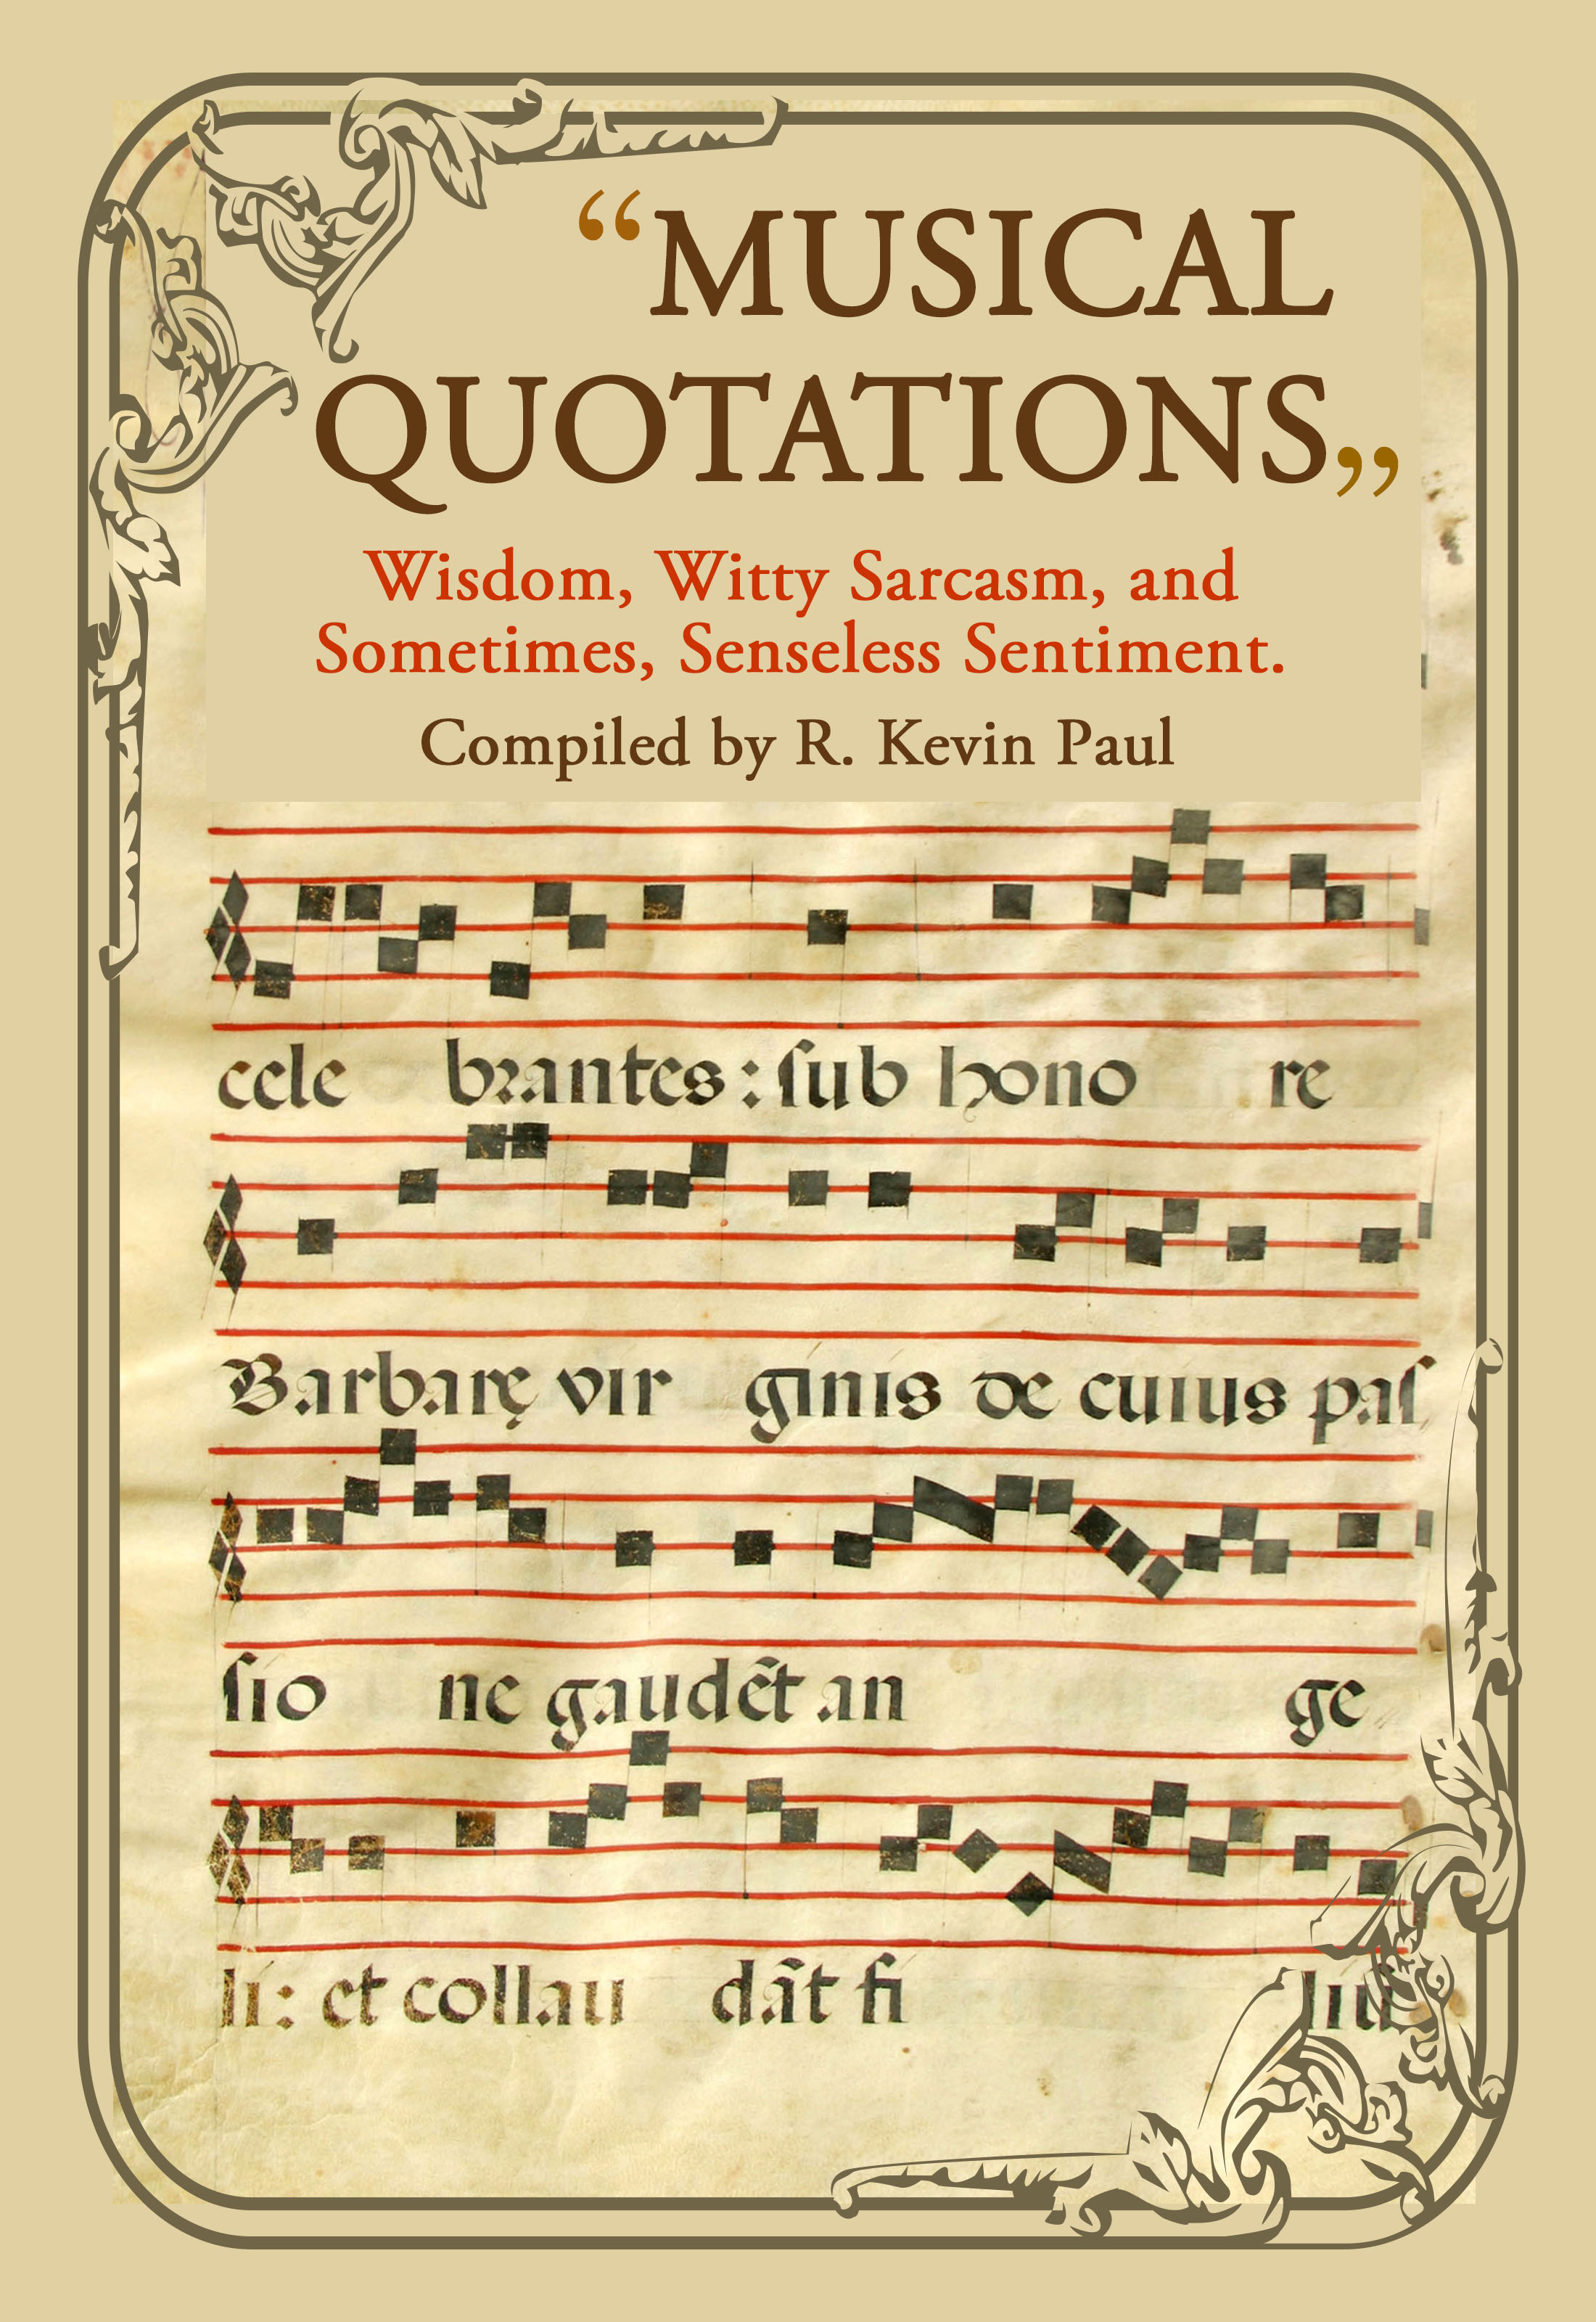 “MUSICAL
QUOTATIONS”
Wisdom, Witty Sarcasm, and
Sometimes, Senseless Sentiment.
Compiled by R. Kevin Paul
cele brantes: ſub hono re
Barbarę vir ginis de cuius paſ
ſio ne gaudēt an ge
li: et collau dāt fi liū